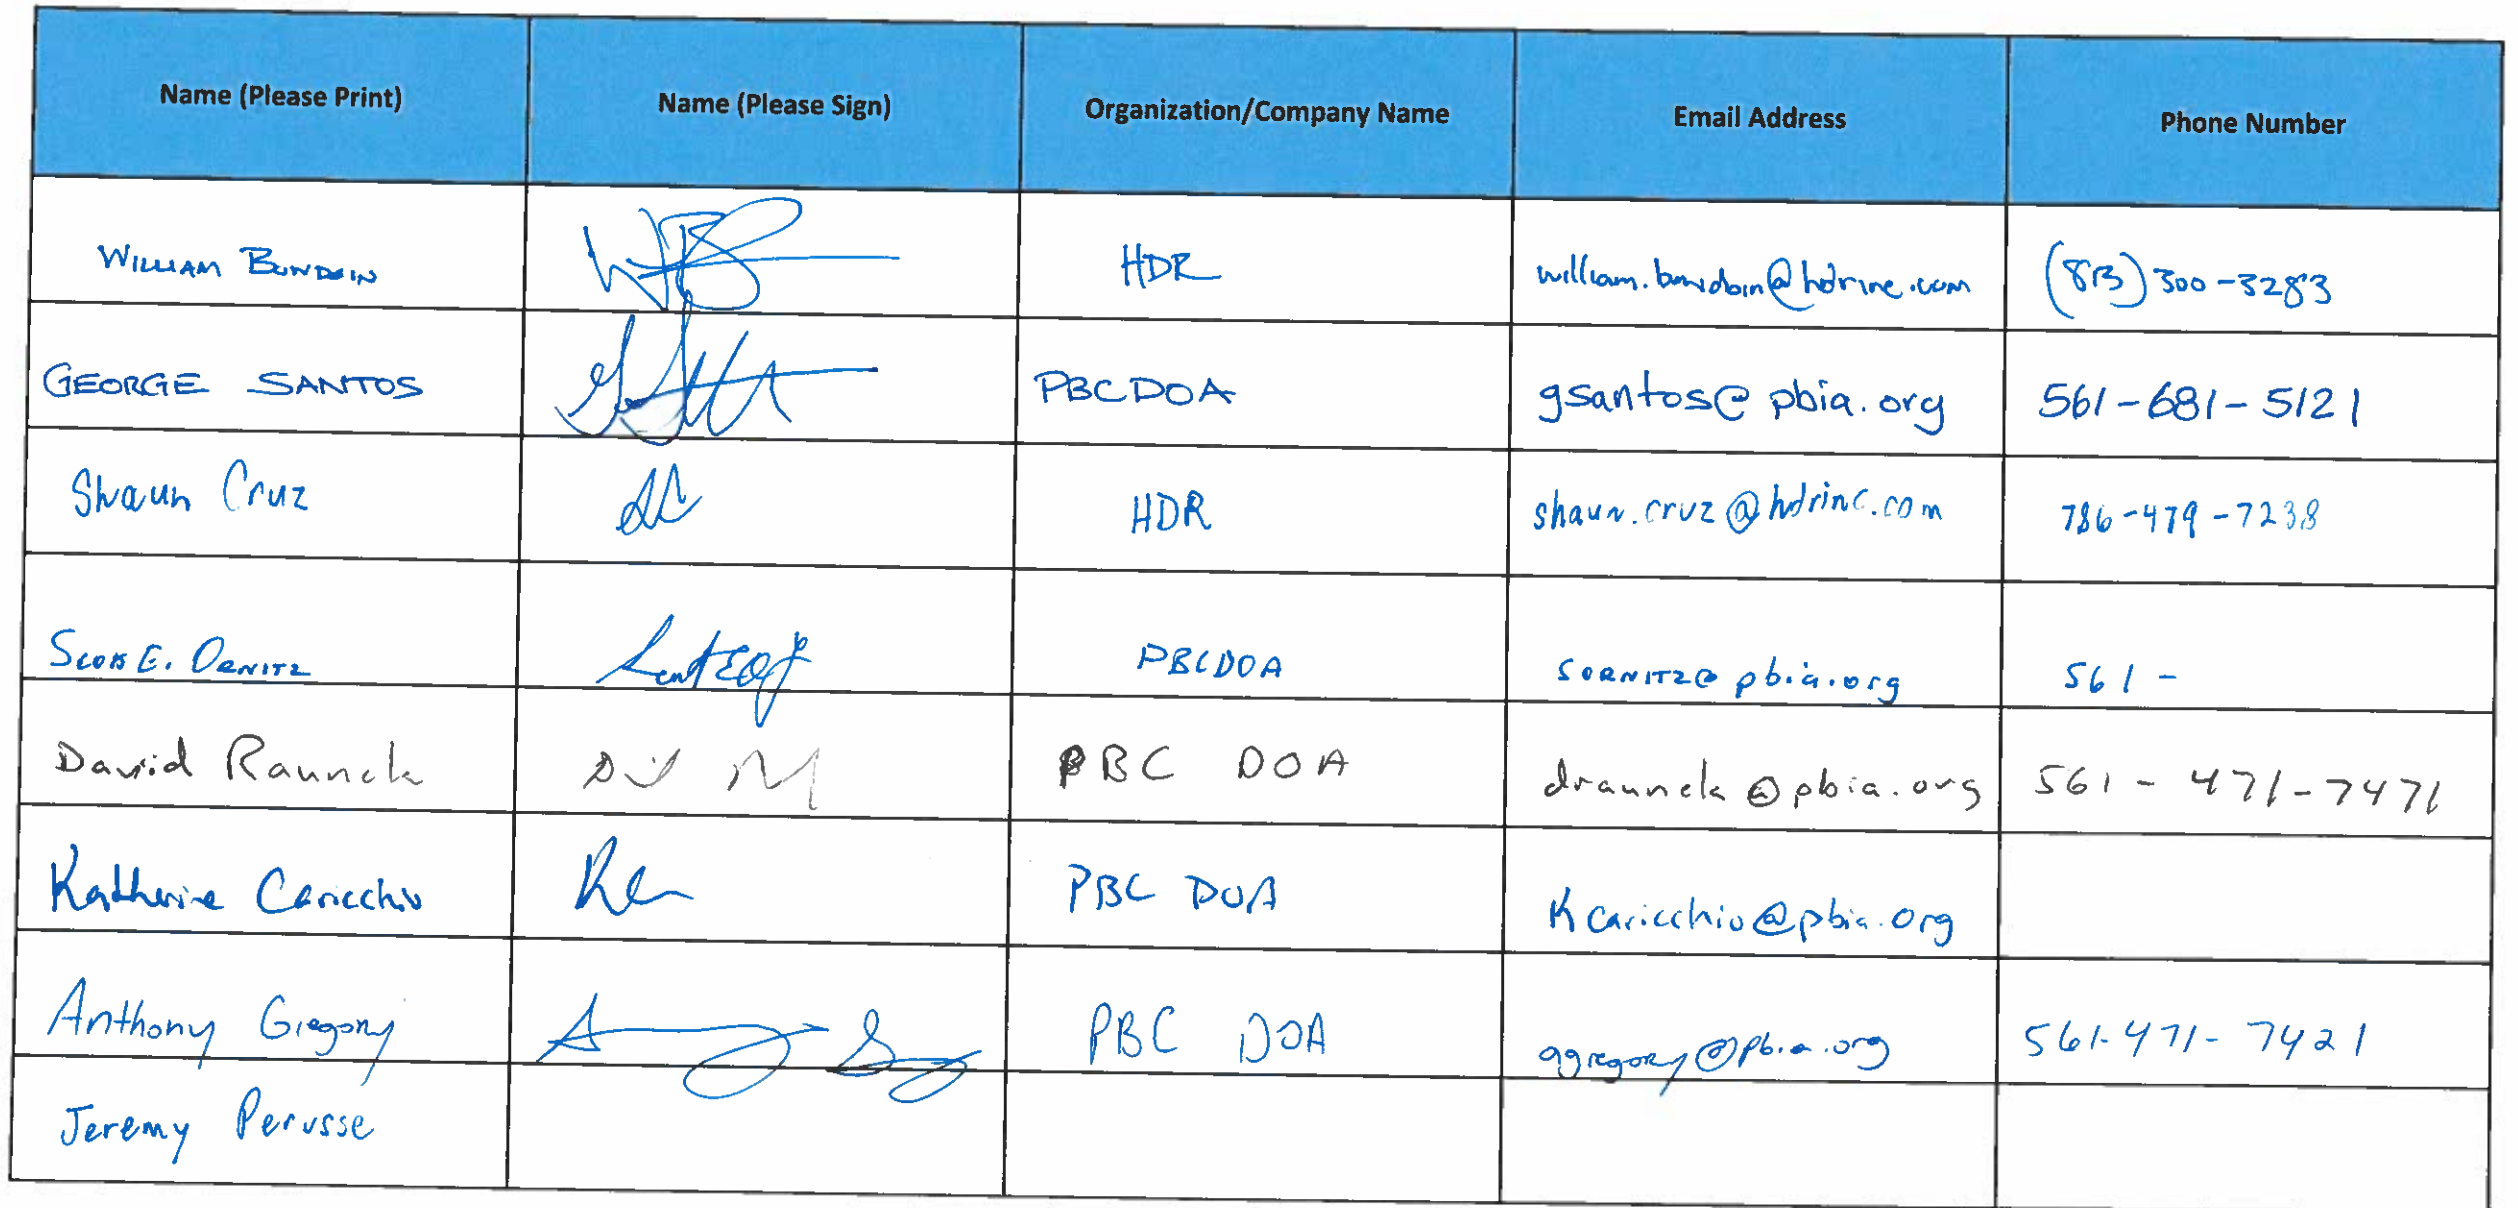 Name (Please Print) Name (Please Sign) Organization/Company Name Email Address Phone Number
WILLIAM HDR (813) 300-3283
GEORGE SANTOS PBCDOA gsantos@pbia.org 561-681-5121
Shaun Cruz HDR shaun.cruz@hdrinc.com 786-479-7238
E. ORNITZ PBCDOA SORNITZ@pbia.org 561-
David Raunck PBC DOA draunck@pbia.org 561-471-7471
Katherine Caricchio PBC DOA Kcaricchio@pbia.org
Anthony Gregory PBC DOA 561-471-7421
Jeremy Perusse